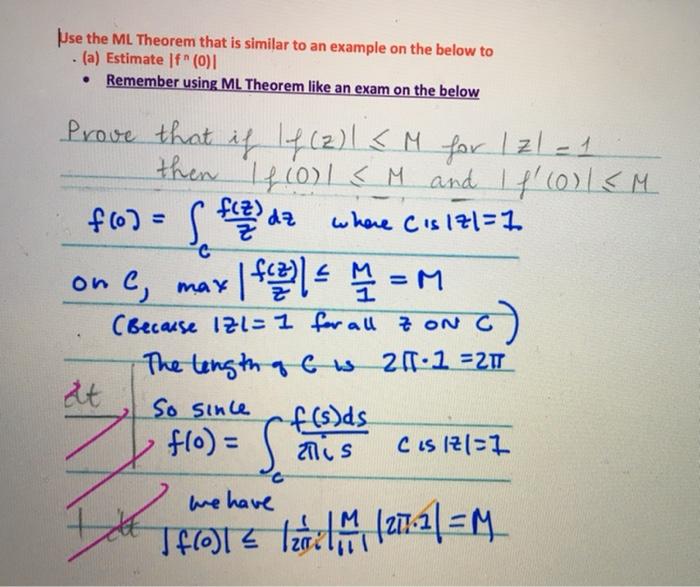 Use the ML Theorem that is similar to an example on the below to
. (a) Estimate |f ⁿ (0)|
• Remember using ML Theorem like an exam on the below
Prove that if |f(z)| ≤ M for |z| = 1
then |f(0)| ≤ M and |f'(0)| ≤ M
f(0) = ∫_C f(z)/z dz where C is |z|=1
on C, max |f(z)/z| ≤ M/1 = M
(Because |z|=1 for all z ON C)
The length of C is 2π·1 = 2π
So since
f(0) = ∫_C f(s)ds/2πis C is |z|=1
we have
|f(0)| ≤ |1/2πi| M/|1| |2π·1| = M